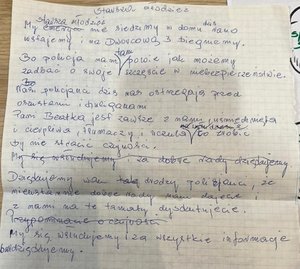 Starsza młodzież
Starsza młodzież dziś
My nie siedzimy w domu rano
wstajemy i na Dworcową 3 biegniemy.
Bo policja nam tam powie jak możemy
zadbać o swoje szczęście w niebezpieczeństwie.
Pani policjana dziś nas ostrzegają przed
oszustami i
Pani Beatka jest zawsze z nami, uśmiechnięta
i cierpliwa, tłumaczy i co robić
by nie stracić czujności.
My się wsłuchujemy i za dobre rady dziękujemy.
Dziękujemy wam drodzy policjanci, że
nieustannie dobre rady nam dajecie i
z nami na te tematy dyskutujecie.
o czujności
My się wsłuchujemy i za wszystkie informacje
dziękujemy.